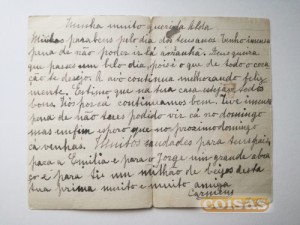 Minha muito querida Alda
Minhos parabens pelo dia dos teus anos. Tenho imensa
pena de não poder ir lá ámanhã. Deus queira
que passes um belo dia, pois é o que de todo o cora-
ção te desejo. A avó continua melhorando feliz-
mente. Estimo que na tua casa estejam todos
bons. Nós por cá continuamos bem. Tive imensa
pena de não teres podido vir cá no domingo
mas enfim espero que no proximo domingo
cá venhas. Muitas saudades para teus pais,
para a Emilia e para o Jorge um grande abra-
ço e para ti um milhão de beijos desta
tua prima muito e muito amiga
Carmens
coisas